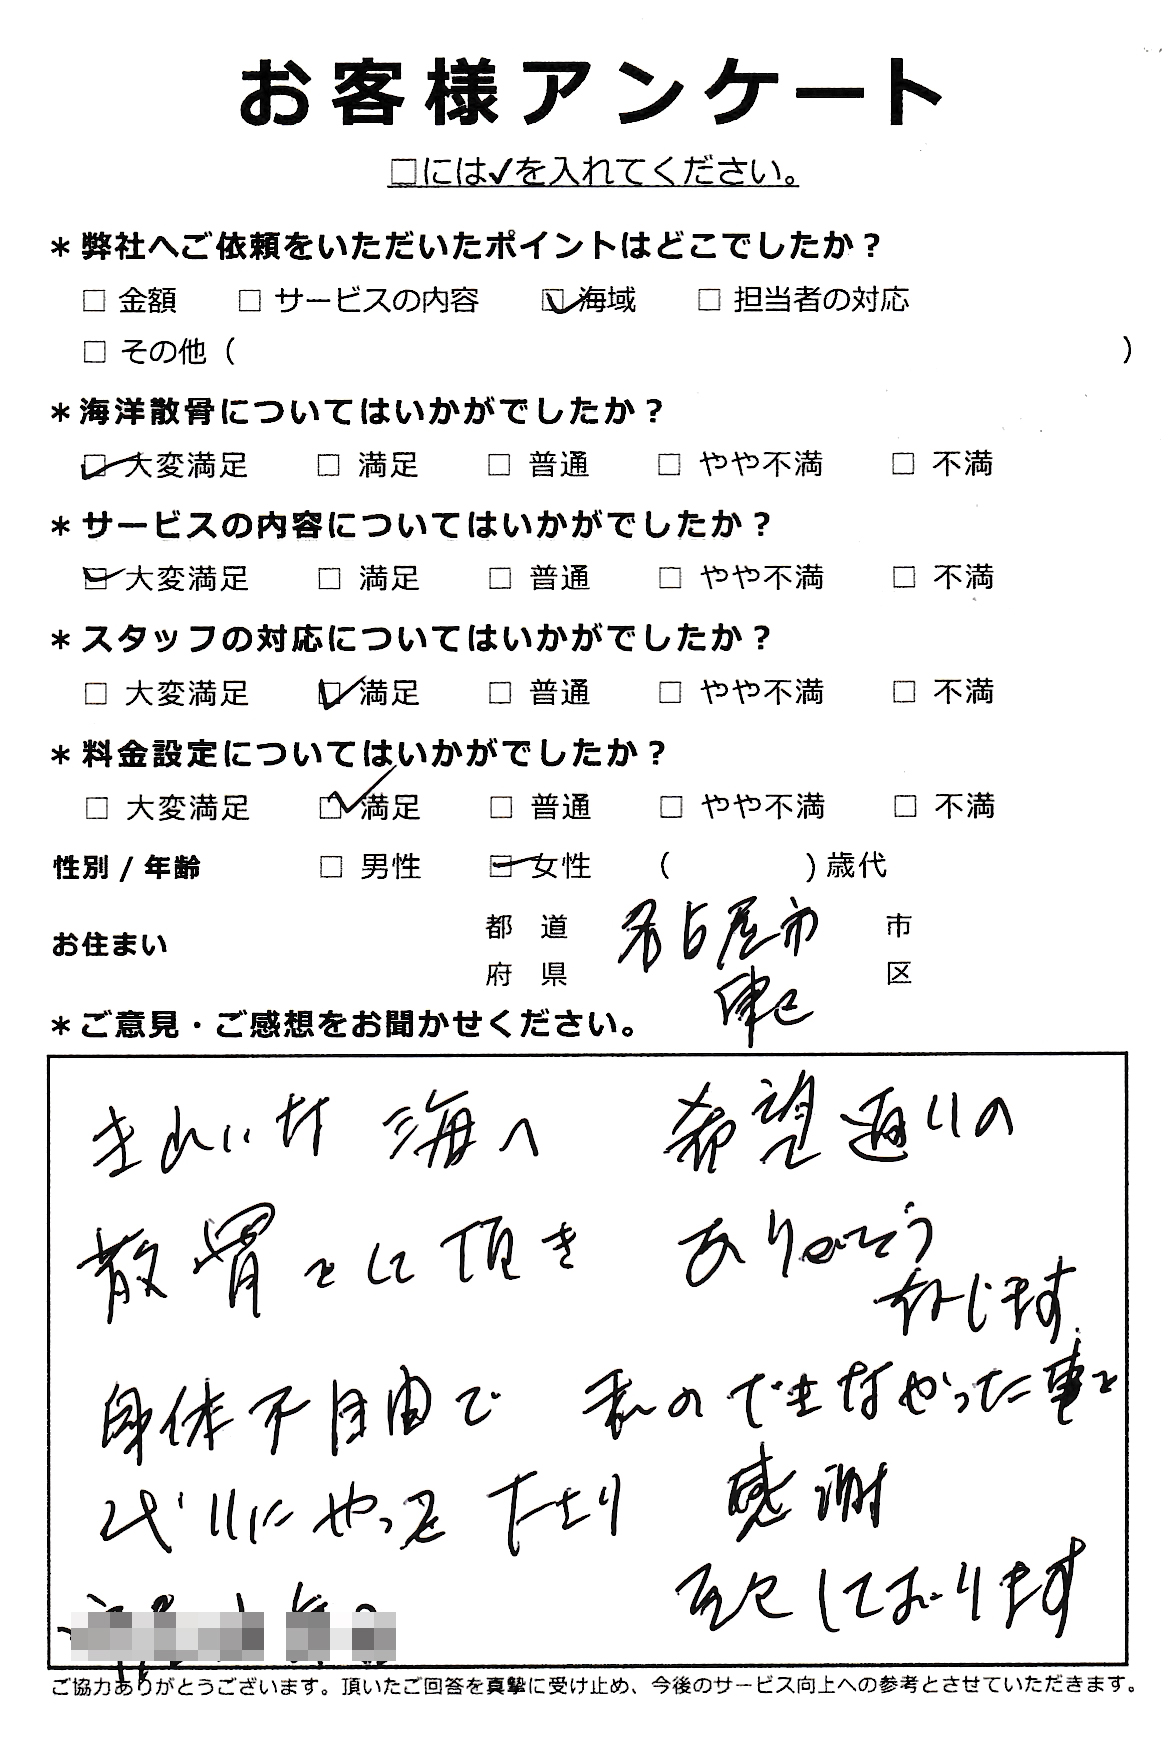 お客様アンケート
□には✓を入れてください。
＊弊社へご依頼をいただいたポイントはどこでしたか？
□ 金額 □ サービスの内容 ☑ 海域 □ 担当者の対応
□ その他（ ）
＊海洋散骨についてはいかがでしたか？
☑ 大変満足 □ 満足 □ 普通 □ やや不満 □ 不満
＊サービスの内容についてはいかがでしたか？
☑ 大変満足 □ 満足 □ 普通 □ やや不満 □ 不満
＊スタッフの対応についてはいかがでしたか？
□ 大変満足 ☑ 満足 □ 普通 □ やや不満 □ 不満
＊料金設定についてはいかがでしたか？
□ 大変満足 ☑ 満足 □ 普通 □ やや不満 □ 不満
性別 / 年齢 □ 男性 ☑ 女性 （ ）歳代
お住まい 都 道 名古屋市 市
府 県 区
＊ご意見・ご感想をお聞かせください。
きれいな 海へ 希望通りの
散骨をして頂き ありがとう
存じます
身体不自由で 私のできなかった事を
代りにやって 下さり 感謝
して おります
ご協力ありがとうございます。頂いたご回答を真摯に受け止め、今後のサービス向上への参考とさせていただきます。